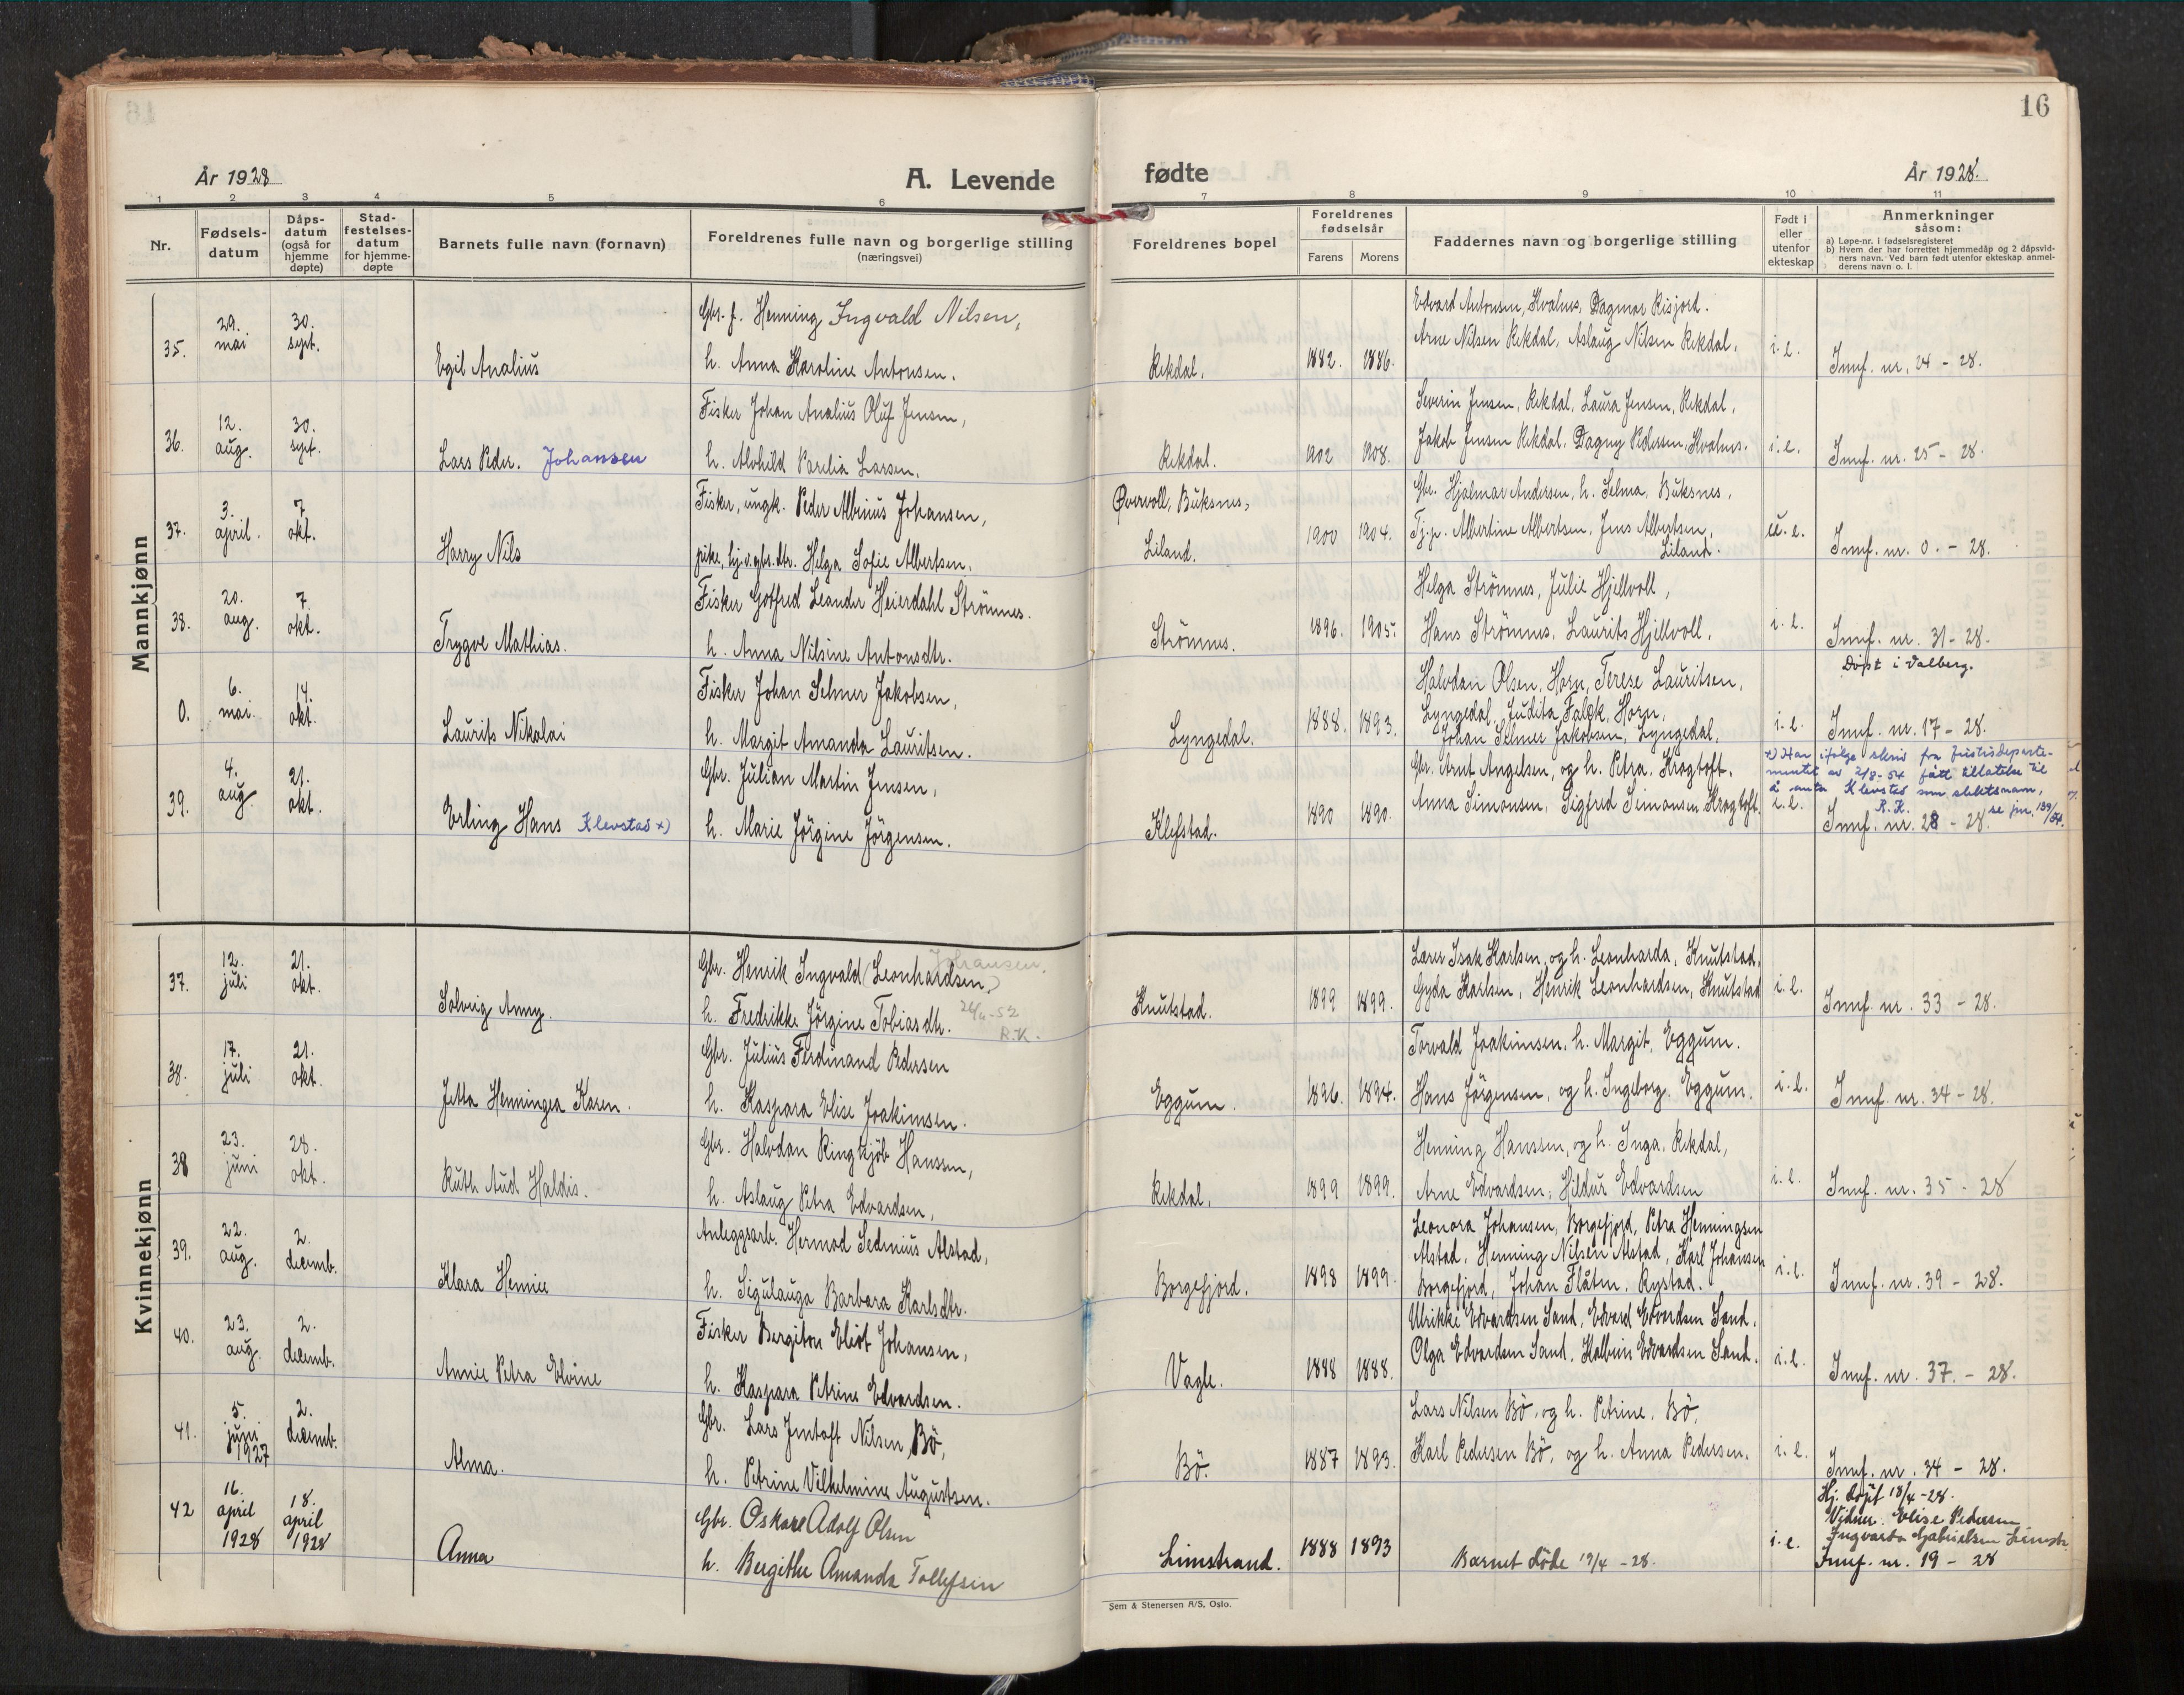 16
År 1928
A. Levende
fødte
År 1928.
1 2 3 4 5 6 7 8 9 10 11
Nr.
Fødsels-
datum
Dåps-
datum
(også for
hjemme
døpte)
Stad-
festelses-
datum
for hjemme-
døpte
Barnets fulle navn (fornavn)
Foreldrenes fulle navn og borgerlige stilling
(næringsvei)
Foreldrenes bopel
Foreldrenes
fødselsår
Farens Morens
Faddernes navn og borgerlige stilling
Født i
eller
utenfor
ekteskap
Anmerkninger
såsom:
a) Løpe-nr. i fødselsregisteret
b) Hvem der har forrettet hjemmedåp og 2 dåpsvid-
ners navn. Ved barn født utenfor ekteskap anmel-
derens navn o. l.
Mannkjønn
35.
29.
mai
30.
sept.
Egil Analius
Gbr. f. Henning Ingvald Nilsen,
h. Anna Karoline Antonsen.
Rekdal,
1882. 1886.
Edvard Antonsen, Hvalnes, Dagmar Risjord.
Arne Nilsen Rekdal, Aslaug Nilsen Rekdal,
i. e.
Innf. nr. 24 - 28.
36.
12.
aug.
30.
sept.
Lars Peder. Johansen
Fisker Johan Analius Oluf Jensen,
h. Alvhild Parelia Larsen.
Rekdal.
1902 1908.
Severin Jensen, Rekdal, Laura Jensen, Rekdal,
Jakob Jensen Rekdal, Dagny Pedersen, Hvalnes.
i. e.
Innf. nr. 25 - 28.
37.
3.
april.
7.
okt.
Harry Nils
Fisker, ungk. Peder Albinus Johansen,
pike, hj.v. gbr.dtr. Helga Sofie Albertsen.
Øvervoll, Buksnes,
Liland.
1900 1904.
Gbr. Hjalmar Andersen, h. Selma, Buksnes,
Tj.p. Albertine Albertsen, Jens Albertsen,
Liland.
u. e.
Innf. nr. 0. - 28.
38.
20.
aug.
7.
okt.
Trygve Mathias.
Fisker Gotfred Leander Heierdahl Strömnes.
h. Anna Nilsine Antonsdtr.
Strömnes.
1896. 1905.
Helga Strömnes, Julie Hjellvoll,
Hans Strömnes, Laurits Hjellvoll.
i. e.
Innf. nr. 31 - 28.
0.
6.
mai.
14.
okt.
Laurits Nikolai
Fisker Johan Selmer Jakobsen,
h. Margit Amanda Lauritsen.
Lyngedal.
1888. 1893.
Halvdan Olsen, Horn, Terese Lauritsen,
Lyngedal, Judita Falck, Horn,
Johan Selmer Jakobsen, Lyngedal.
i. e.
Döpt i Valberg.
Innf. nr. 17 - 28.
39.
4.
aug.
21.
okt.
Erling Hans Klevstad x)
Gbr. Julian Martin Jensen,
h. Marie Jörgine Jörgensen.
Klefstad.
1890 1890.
Gbr. Arnt Angelsen, og h. Petra. Krogtoft.
Anna Simonsen, Sigfred Simonsen Krogtoft.
i. e.
x) Har ifølge skriv fra Justisdeparte-
mentet av 2/8-54 fått tillatelse til
å anta Klevstad som slektsnavn,
R.K. se jnr. 139/54.
Innf. nr. 28 - 28.
Kvinnekjønn
37.
12.
juli
21.
okt.
Solveig Anny.
Johansen.
Gbr. Henrik Ingvald (Leonhardsen)
h. Fredrikke Jörgine Tobiasdtr.
R.K.
Knutstad.
1899 1899.
Lærer Isak Karlsen, og h. Leonharda, Knutstad,
Gyda Karlsen, Henrik Leonhardsen, Knutstad
i. e.
Innf. nr. 33 - 28.
38.
17.
juli
21.
okt.
Jetta Henningea Karen.
Gbr. Julius Ferdinand Pedersen
h. Kaspara Elise Joakimsen.
Eggum.
1896. 1894.
Torvald Joakimsen, h. Margit, Eggum.
Hans Jörgensen, og h. Ingeborg, Eggum.
i. e.
Innf. nr. 34 - 28.
38
23.
juni
28.
okt.
Ruth Aud Haldis.
Gbr. Halvdan Ringkjöb Hanssen,
h. Aslaug Petra Edvardsen,
Rekdal,
1899 1899.
Henning Hanssen, og h. Inga, Rekdal,
Arne Edvardsen, Hildur Edvardsen
i. e.
Innf. nr. 35 - 28
39.
22.
aug.
2.
decemb.
Klara Hennie
Anleggsarb. Hermod Sedenius Alstad,
h. Sigulauga Barbara Karlsdtr.
Borgefjord.
1898 1899.
Leonora Johansen, Borgefjord, Petra Henningsen
Alstad, Henning Nilsen Alstad, Karl Johansen
Borgefjord, Johan Flåten, Rystad.
i. e.
Innf. nr. 39 - 28.
40.
23.
aug.
2.
decemb.
Annie Petra Elvine
Fisker Bergiton Elidt Johansen,
h. Kaspara Petrine Edvardsen.
Vagle.
1888 1888.
Ulrikke Edvardsen Sand, Edvard Edvardsen Sand.
Olga Edvardsen Sand, Halbein Edvardsen Sand.
i. e.
Innf. nr. 37. - 28.
41.
5.
juni
1927
2.
decemb.
Alma.
Gbr. Lars Jentoft Nilsen Bö,
h. Petrine Vilhelmine Augustsen.
Bö.
1887 1893.
Lars Nilsen Bö, og h. Petrine, Bö,
Karl Pedersen Bö, og h. Anna Pedersen.
i. e.
Innf. nr. 34 - 28.
42
16.
april
1928
18.
april
1928
Anna
Gbr. Oskar Adolf Olsen
h. Bergithe Amanda Tollefsen
Limstrand.
1888 1893
Barnet døde 19/4 - 28.
i. e.
Hj. döpt 18/4-28.
Vidner. Elise Pedersen
Ingvarda Gabrielsen
Innf. nr. 19 - 28
Sem & Stenersen A/S, Oslo.